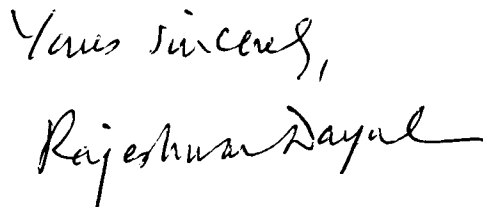 Yours sincerely,
Rajeshwar Dayal